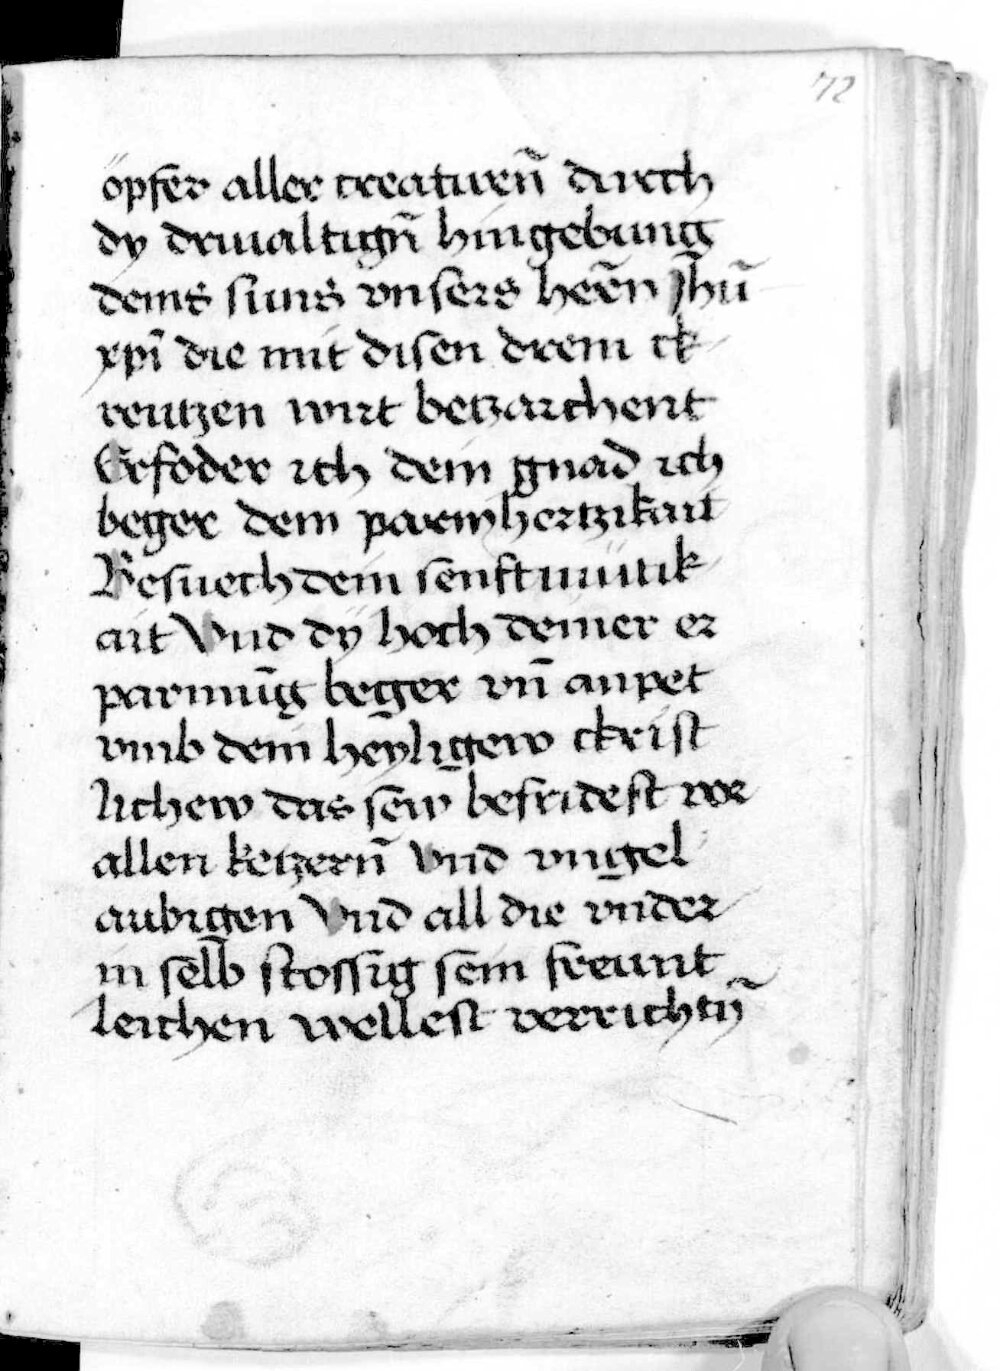 72
öpfer aller creaturen̄ durch
dy driualtign̄ hingebung
deins suns vnsers heēn Jhū
xpī die mit disen drein ck
reutzen wirt betzaichent
Erfoder ich dein gnad ich
beger dein parmhertzikait
Besuech dein senftmütik
ait Vnd dÿ hoch deiner er
parmūg beger vn̄ anpet
vmb dein heyligew ckrist
lichew das sew befridest vor
allen ketzern̄ Vnd vngel
aubigen Vnd all die vnder
in selb stossig sein freunt
leichen wellest verrichtn̄